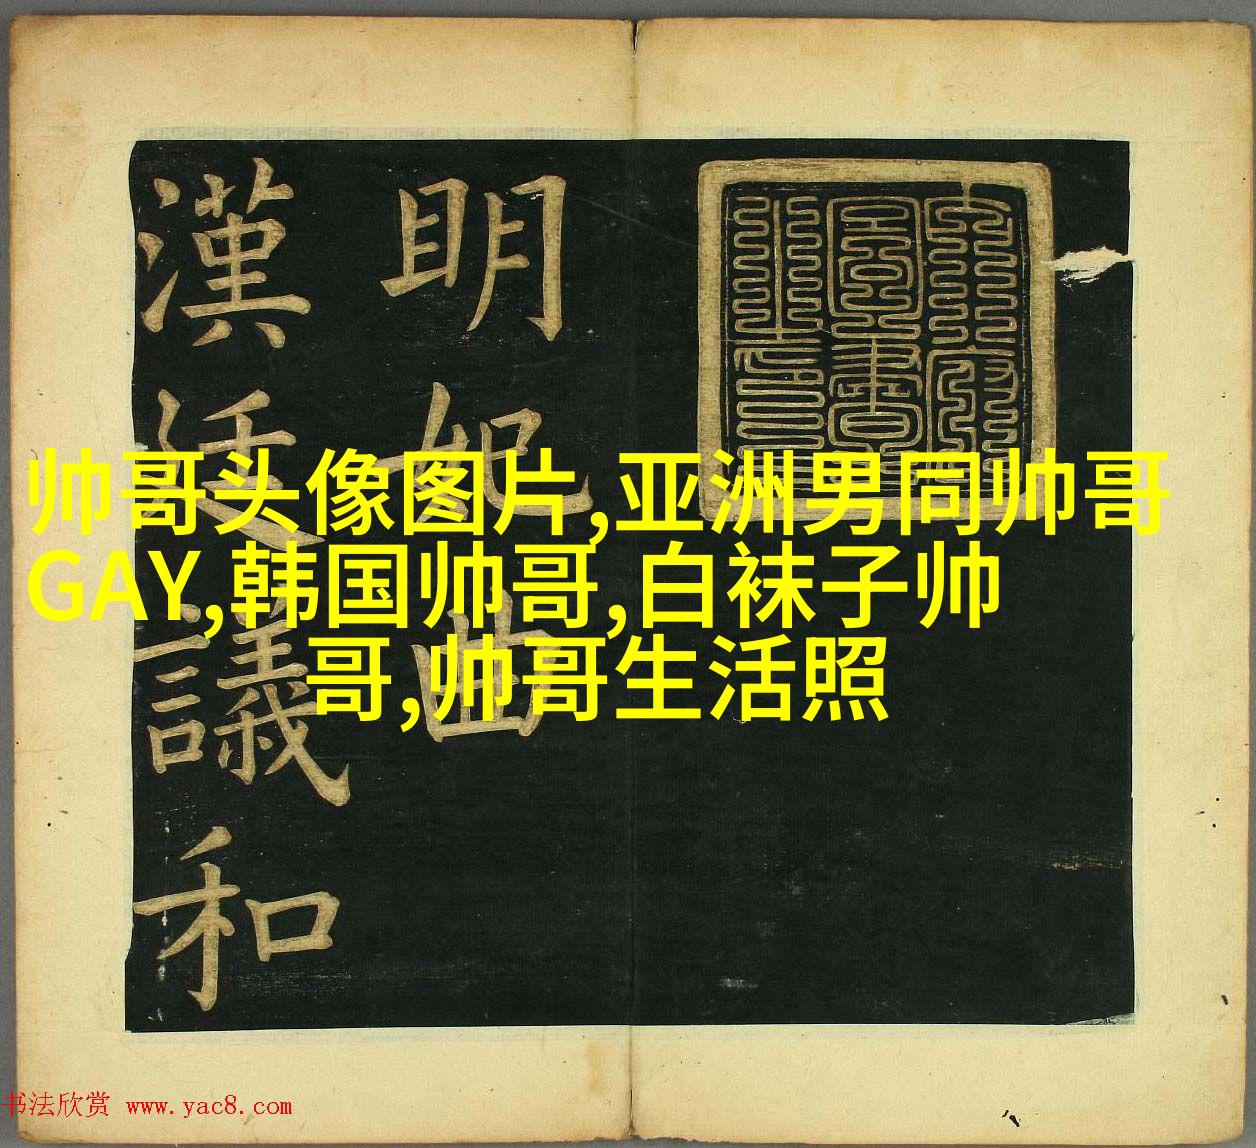 明妃曲
漢廷議和
帅哥头像图片,亚洲男同帅哥
GAY,韩国帅哥,白袜子帅
哥,帅哥生活照
书法欣赏 www.yac8.com